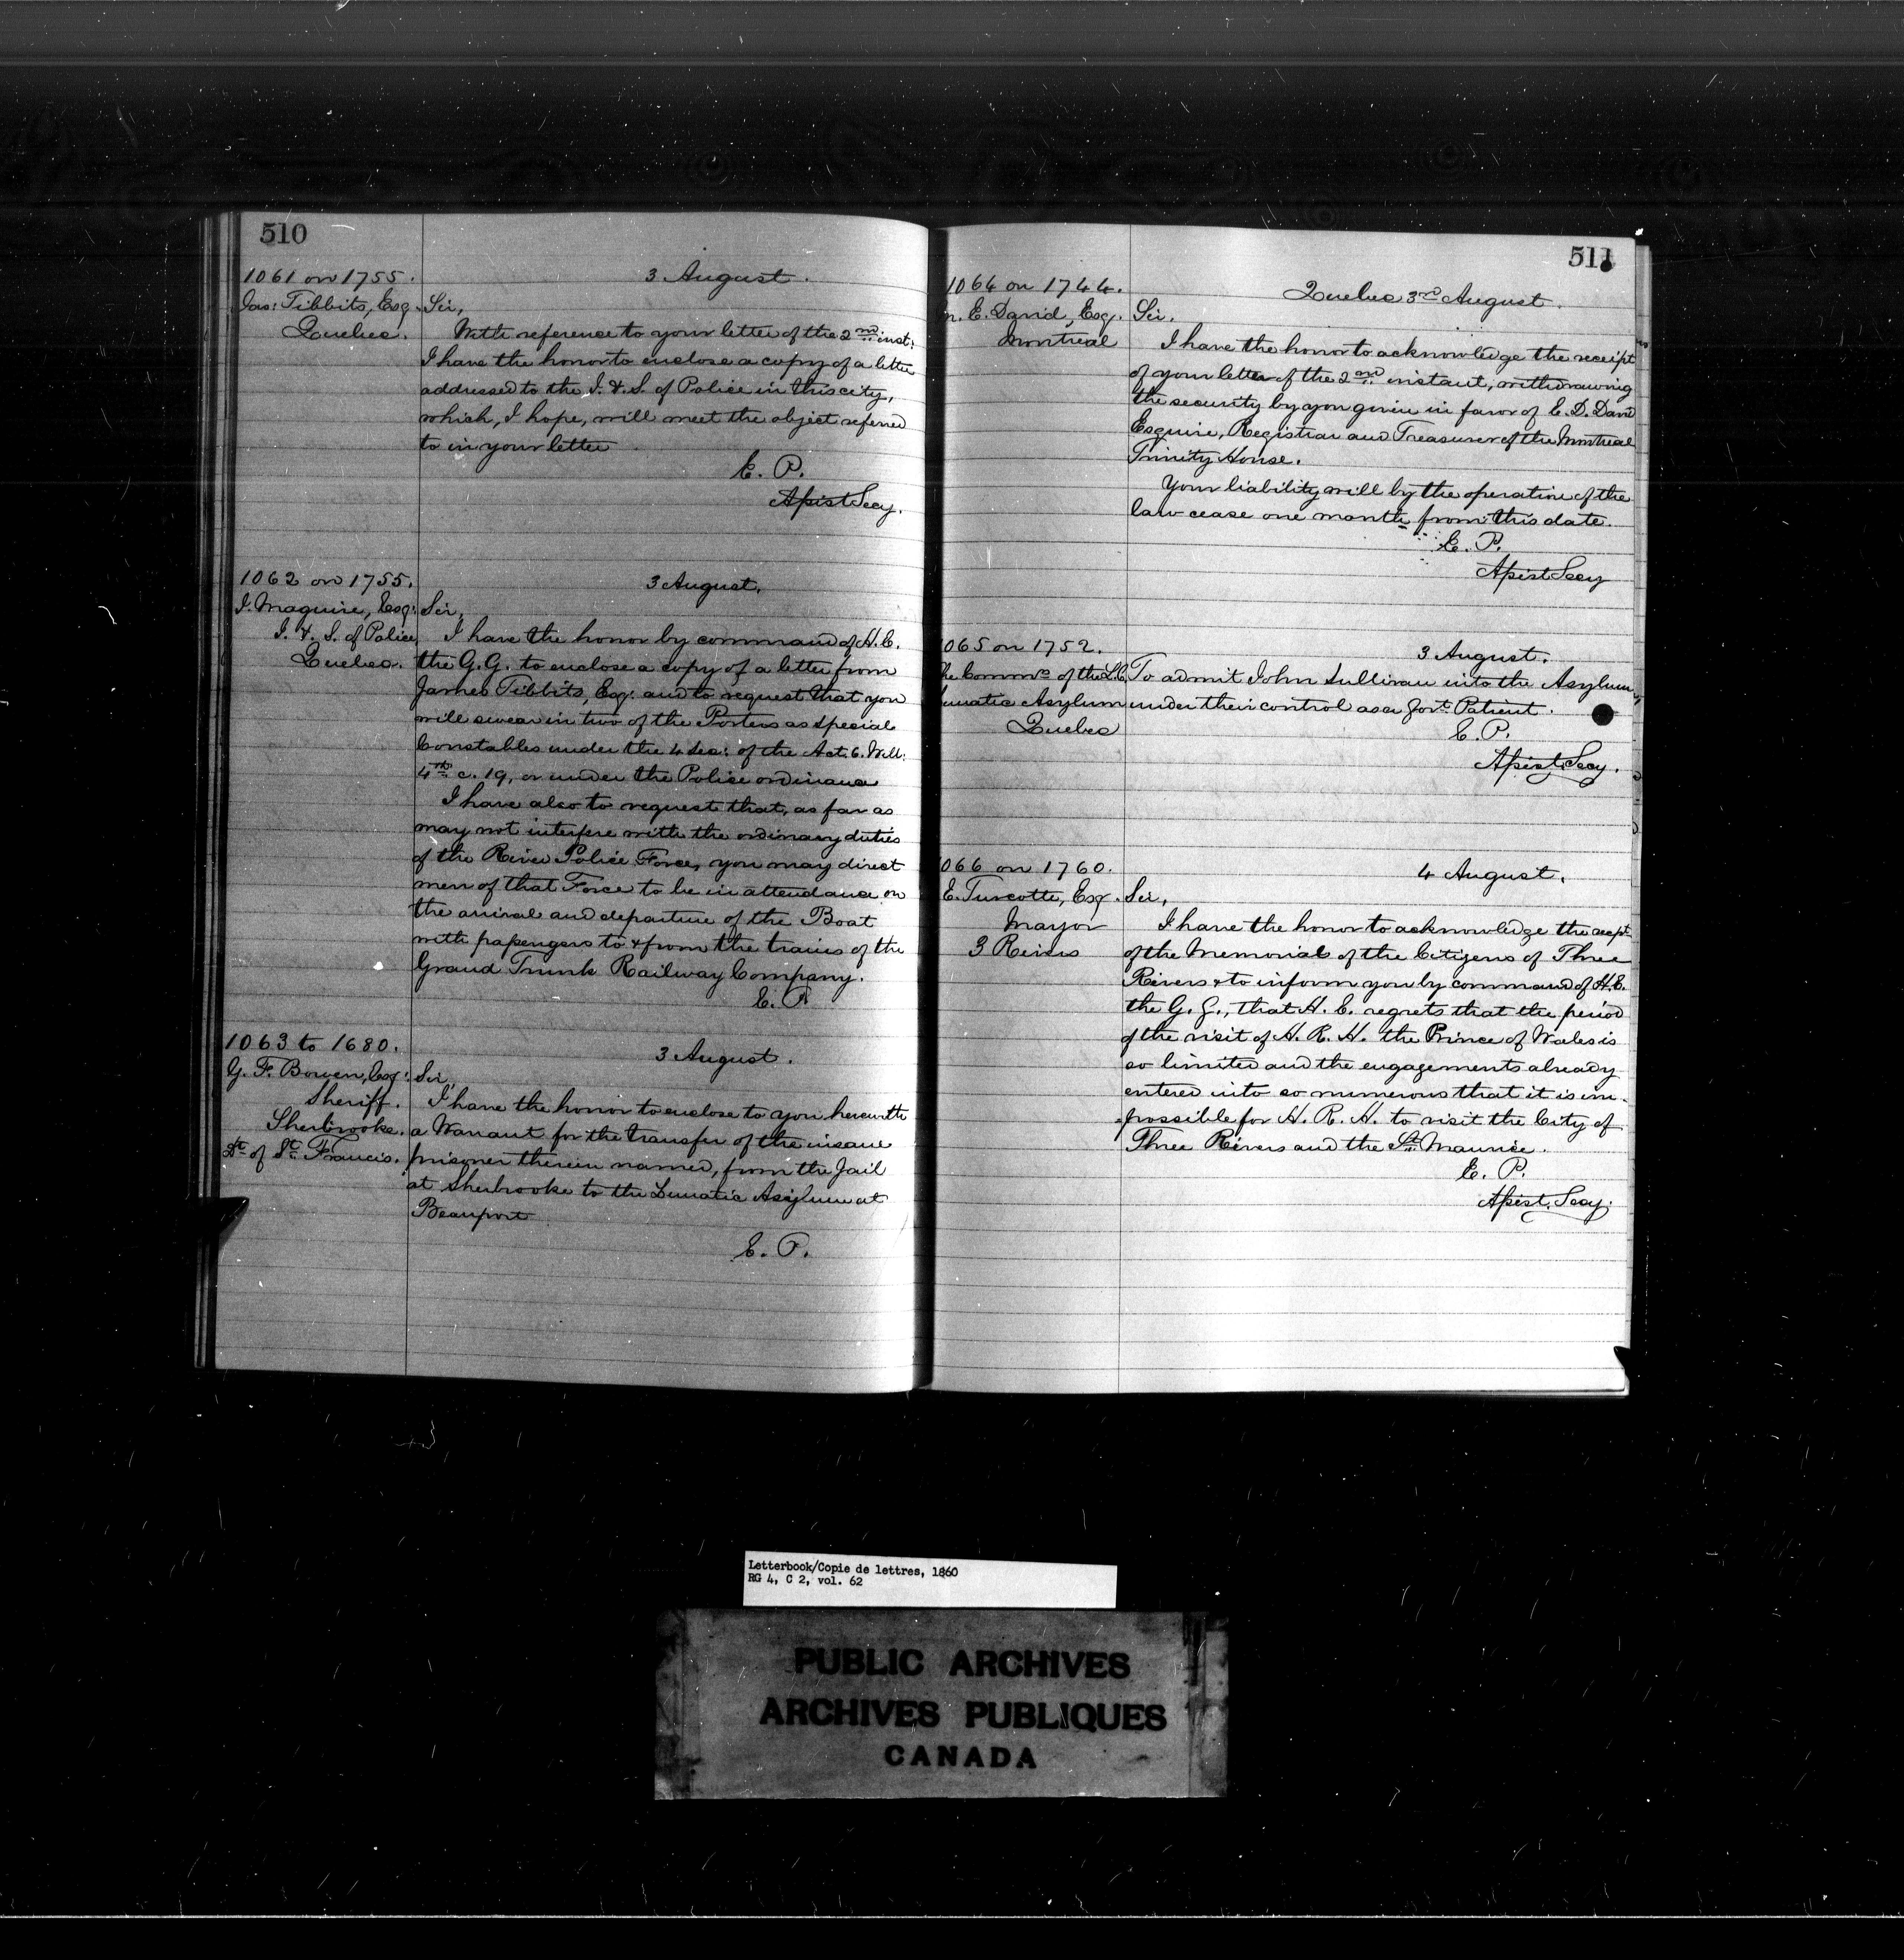 510
1061 on 1755.
3 August.
Jas: Tibbits, Esq.
Quebec.
Sir,
With reference to your letter of the 2nd inst:
I have the honor to enclose a copy of a letter
addressed to the I. & S. of Police in this city,
which, I hope, will meet the object referred
to in your letter
E. P.
Assist Secy.
1062 on 1755.
3 August.
J. Maguire, Esq:
I. & S. of Police
Quebec.
Sir,
I have the honor by command of H. E.
the G. G. to enclose a copy of a letter from
James Tibbits, Esq: and to request that you
will swear in two of the Porters as special
Constables under the 4 Sec: of the Act. 6. Will:
4th c. 19, or under the Police ordinance
I have also to request that, as far as
may not interfere with the ordinary duties
of the River Police Force, you may direct
men of that Force to be in attendance on
the arrival and departure of the Boat
with passengers to & from the trains of the
Grand Trunk Railway Company.
E. P.
1063 to 1680.
3 August.
G. F. Bowen, Esq:
Sheriff.
Sherbrooke.
Dt of St Francis.
Sir,
I have the honor to enclose to you herewith
a Warrant for the transfer of the insane
prisoner therein named, from the Jail
at Sherbrooke to the Lunatic Asylum at
Beauport
E. P.
511
1064 on 1744.
Quebec 3rd August.
E. David, Esq.
Montreal
Sir.
I have the honor to acknowledge the receipt
of your letter of the 2nd instant, withdrawing
the security by you given in favor of E. D. David
Esquire, Registrar and Treasurer of the Montreal
Trinity House.
Your liability will by the operation of the
law cease one month from this date.
E. P.
Assist Secy
065 on 1752.
3 August.
he Commrs of the L.C.
unatic Asylum
Quebec
To admit John Sullivan into the Asylum
under their control as a Govt Patient.
E. P.
Assist Secy.
066 on 1760.
4 August.
E. Turcotte, Esq.
Mayor
3 Rivers
Sir,
I have the honor to acknowledge the recpt
of the Memorial of the Citizens of Three
Rivers & to inform you by command of H. E.
the G. G., that H. E. regrets that the period
of the visit of H. R. H. the Prince of Wales is
so limited and the engagements already
entered into so numerous that it is im-
possible for H. R. H. to visit the City of
Three Rivers and the St. Maurice.
E. P.
Assist. Secy.
Letterbook/Copie de lettres, 1860
RG 4, C 2, vol. 62
PUBLIC ARCHIVES
ARCHIVES PUBLIQUES
CANADA